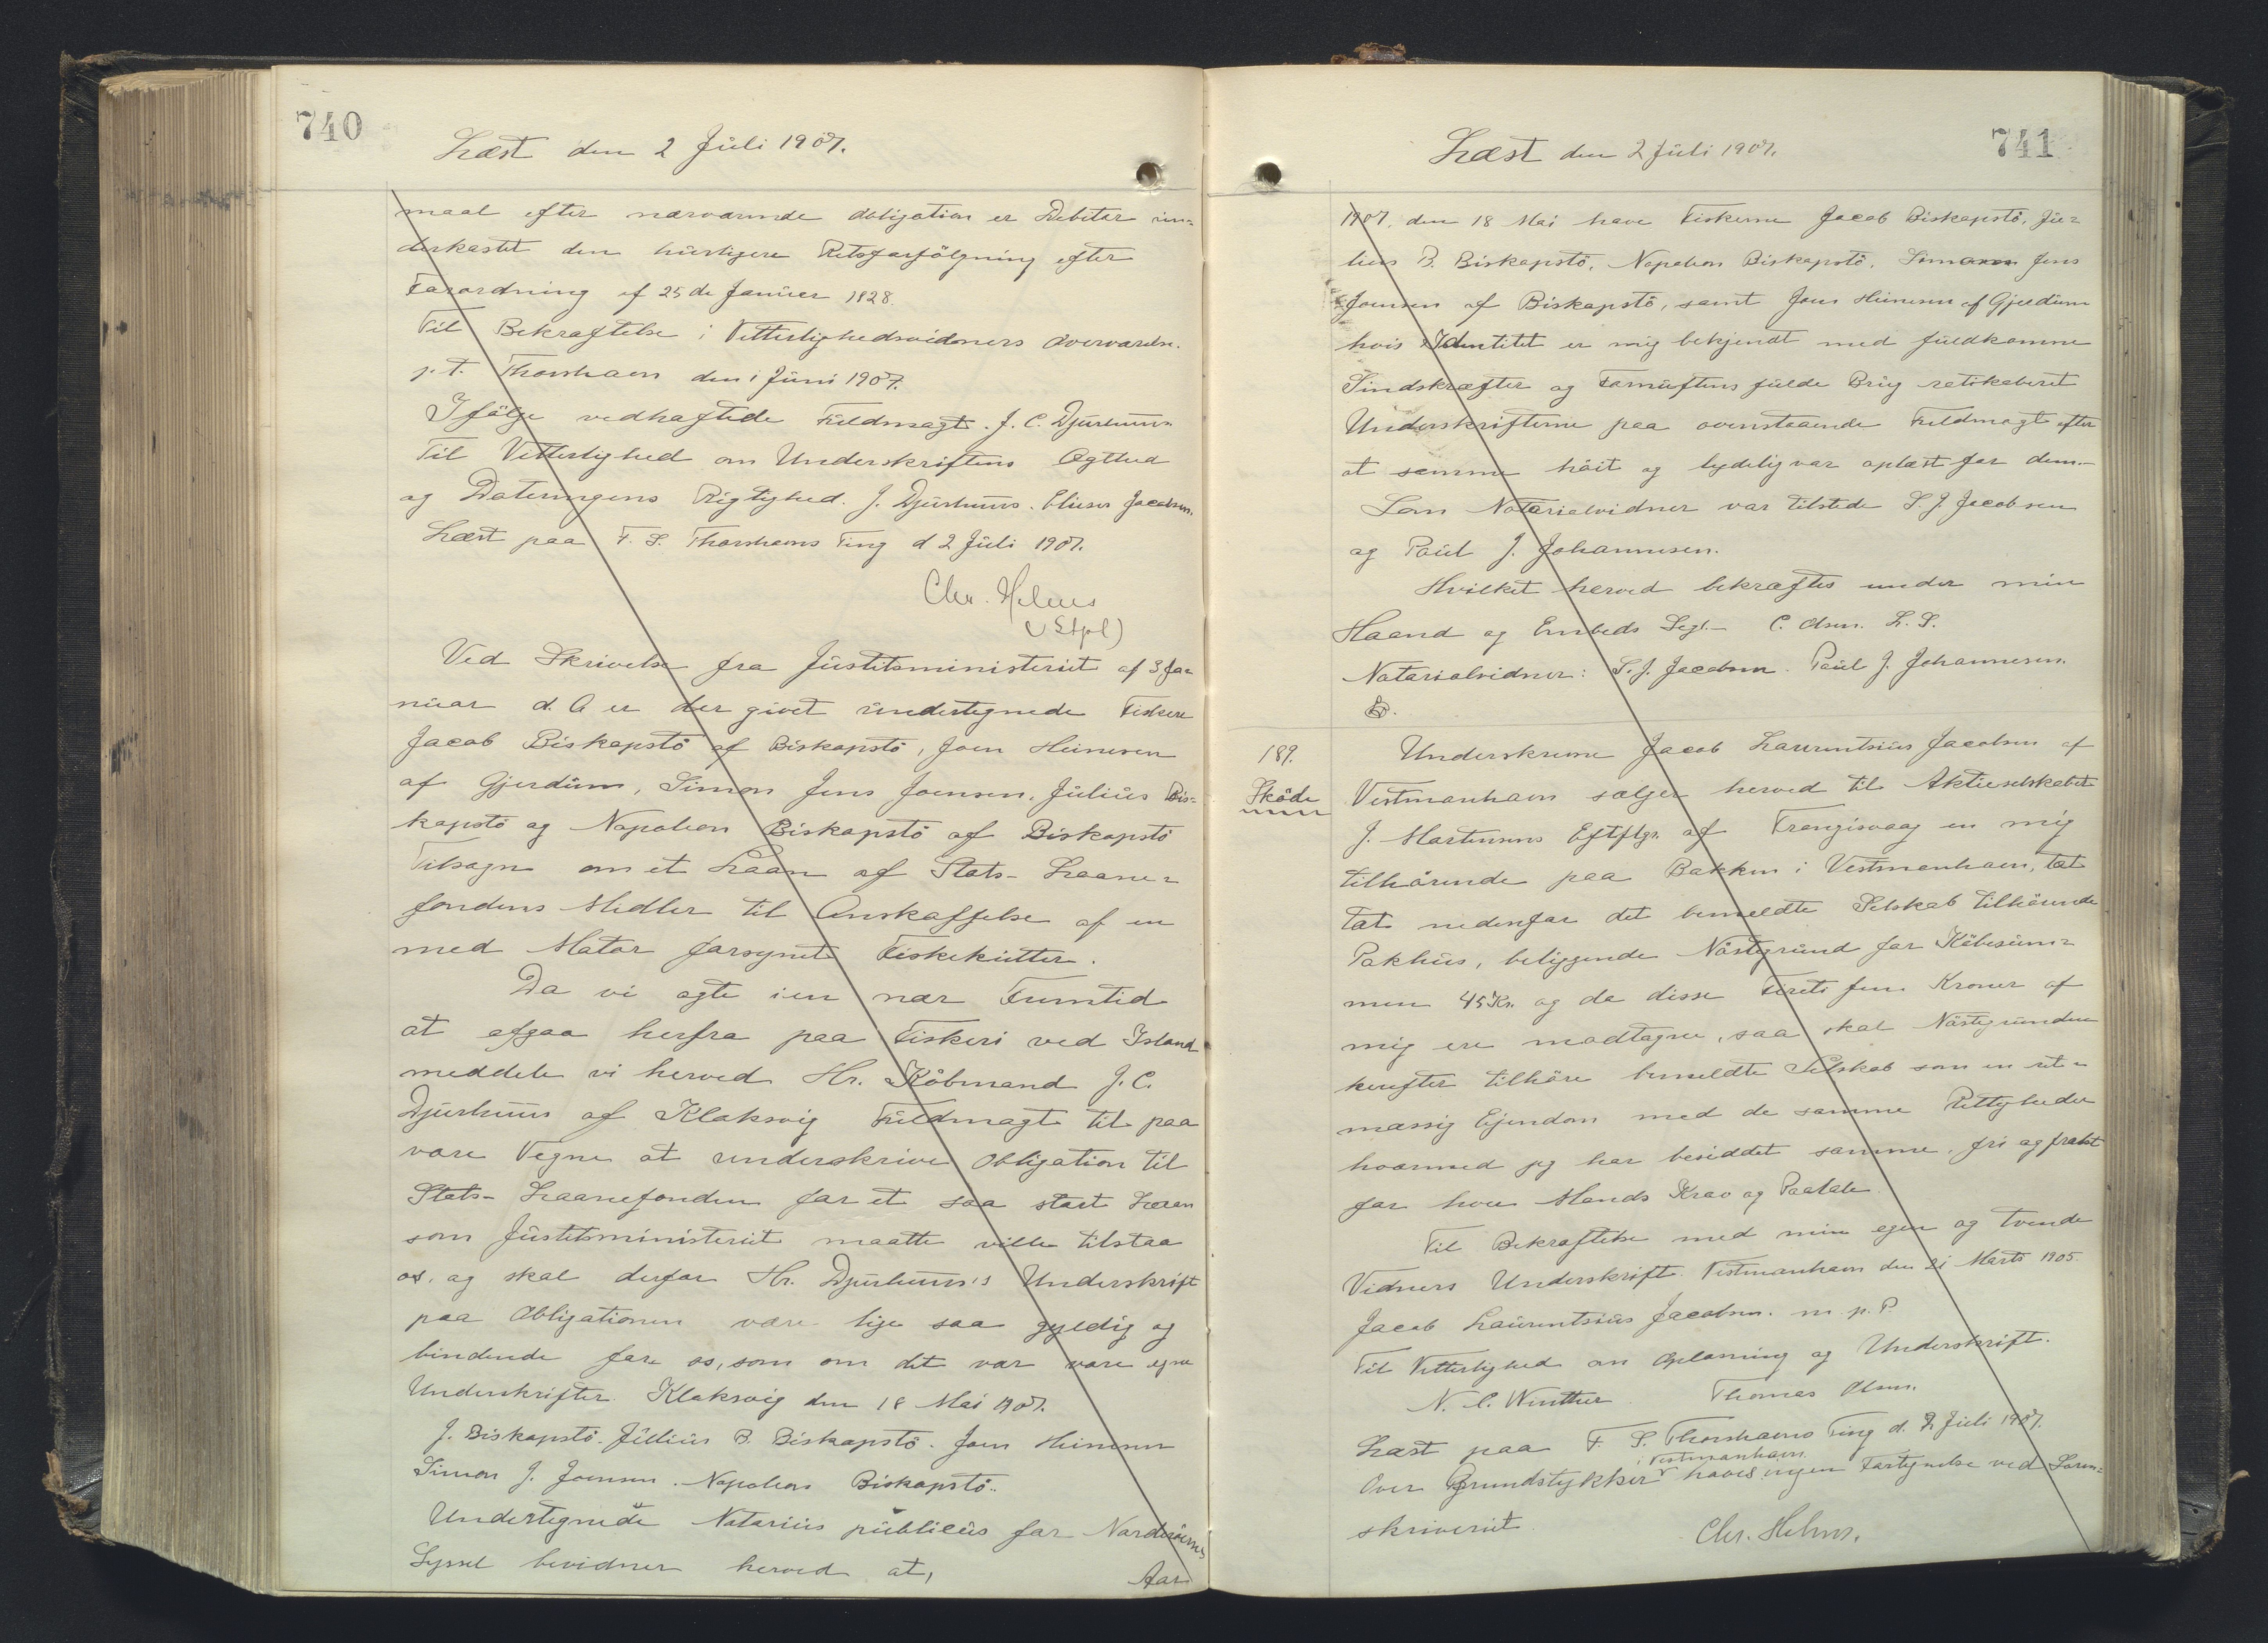 740
Læst den 2 Júli 1907.
maal efter nærværende Obligation er Debitor ún-
derkastet den húrtigere Retsforfölgning efter
Forordning af 25de Janúar 1828.
Til Bekræftelse i Vitterlighedsvidners Overværelse.
p.t. Thorshavn den 1 Júni 1907.
Ifölge vedhæftede Fúldmagt. J. C. Djúrhúús
Til Vitterlighed om Underskriftens Ægthed
og Dateringens Rigtighed. J. Djúrhúús. Elieser Jacobsen.
Læst paa F. S. Thorshavns Ting d 2 Júli 1907.
Chr. Helms
(Stpl)
Ved Skrivelse fra Jústitsministeriet af 3 Ja-
núar d. A er der givet úndertegnede Fiskere
Jacob Biskopstö af Biskopstö, Joen Heinesen
af Gjerdúm, Simon Jens Joensen, Júliús Bis-
kopstö og Napoleon Biskopstö af Biskopstö
Tilsagn om et Laan af Stats-Laane-
fondens Midler til Anskaffelse af en
med Motor forsynet Fiskekútter.
Da vi agte i en nær Fremtid
at afgaa herfra paa Fiskeri ved Island
meddele vi herved Hr. Köbmand J. C.
Djúrhúús af Klaksvig Fúldmagt til paa
vore Vegne at underskrive Obligation til
Stats-Laanefonden for et saa stort Laan
som Jústitsministeriet maatte ville tilstaa
os, og skal derfor Hr. Djúrhúús's Underskrift
paa Obligationen være lige saa gyldig og
bindende for os, som om det var vore egne
Underskrifter. Klaksvig den 18 Mai 1907.
J. Biskopstö. Júliús B. Biskopstö. Joen Heinesen
Simon J. Joensen. Napoleon Biskopstö.
Undertegnede Notariús públicús for Norderöernes
Syssel bevidner herved at,
Aar
741
Læst den 2 Júli 1907.
1907, den 18 Mai have Fiskerne Jacob Biskopstö, Jú-
liús B. Biskopstö, Napoleon Biskopstö, Simon Jens
Joensen af Biskopstö, samt Joen Heinesen af Gjerdúm
hvis Identitet er mig bekjendt med fúldkomne
Sindskræfter og Fornúftens fúlde Brúg ratihaberet
Underskrifterne paa ovenstaaende Fúldmagt efter
at samme höit og tydelig var oplæst for dem.-
Som Notarialvidner var tilstede S. J. Jacobsen
og Poúl J. Johannesen.
Hvilket herved bekræftes under min
Haand og Embeds Segl.- C. Olsen. L. S.
Notarialvidner: S. J. Jacobsen. Poúl J. Johannesen.
189.
Sköde
Underskrevne Jacob Laurentsiús Jacobsen af
Vestmanhavn sælger herved til Aktieselskabet
J. Mortensens Eftflgr. af Trangisvaag en mig
tilhörende paa Bakken i Vestmanhavn, tæt
tæt nedenfor det bemeldte Selskab tilhörende
Pakhús, beliggende Nöstegrúnd for Köbesúm-
men 45 Kr. og da disse Fireti fem Kroner af
mig ere modtagne, saa skal Nöstegrúnden
herefter tilhöre bemeldte Selskab som en ret-
mæssig Ejendom med de samme Rettigheder
hvormed jeg har besiddet samme, fri og frelst
for hver Mands Krav og Paatale.
Til Bekræftelse med min egen og tvende
Vidners Underskrift. Vestmanhavn den 21 Marts 1905.
Jacob Laúrentsiús Jacobsen. m. p. P.
Til Vitterlighed om Oplæsning og Underskrift.
N. C. Winther. Thomas Olsen.
Læst paa F. S. Thorshavns Ting d. 2 Júli 1907.
Over Grundstykker i Vestmanhavn haves ingen Fortegnelse ved Soren-
skriveriet
Chr. Helms.